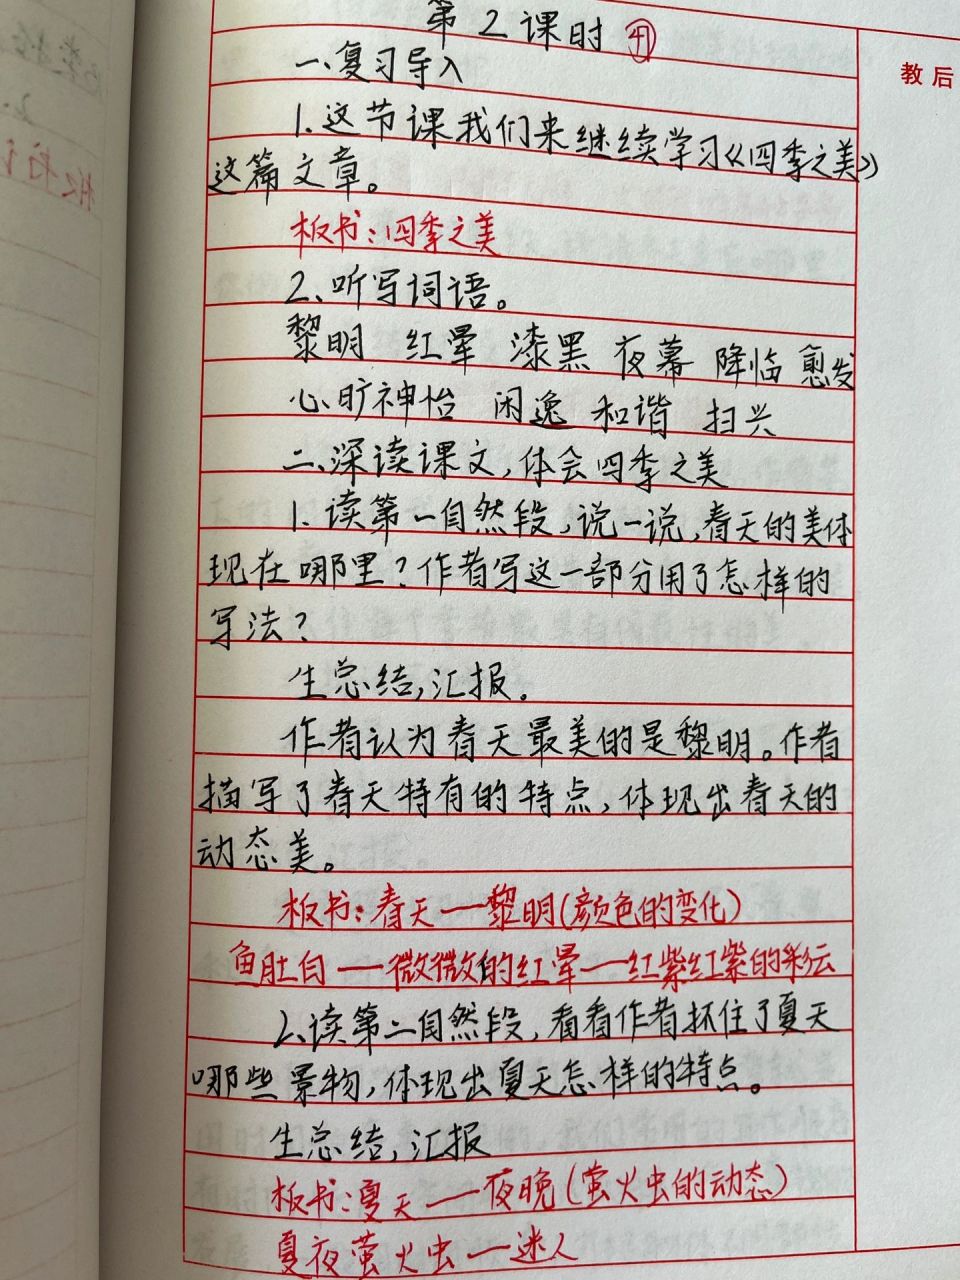 第2课时 ㊛
一、复习导入
教后
1.这节课我们来继续学习《四季之美》
这篇文章。
板书:四季之美
2、听写词语。
黎明 红晕 漆黑 夜幕 降临 愈发
心旷神怡 闲逸 和谐 扫兴
二、深读课文,体会四季之美
1.读第一自然段,说一说,春天的美体
现在哪里?作者写这一部分用了怎样的
写法?
生总结,汇报。
作者认为春天最美的是黎明。作者
描写了春天特有的特点,体现出春天的
动态美。
板书:春天——黎明(颜色的变化)
鱼肚白——微微的红晕——红紫红紫的彩云
2、读第二自然段,看看作者抓住了夏天
哪些景物,体现出夏天怎样的特点。
生总结,汇报
板书:夏天——夜晚(萤火虫的动态)
夏夜萤火虫——迷人
板书